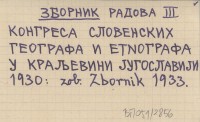 ЗБОРНИК РАДОВА III
КОНГРЕСА СЛОВЕНСКИХ
ГЕОГРАФА И ЕТNОГРАФА
У КРАЉЕВИНИ ЈУГОСЛАВИЈИ
1930: zob. Zbornik 1933.